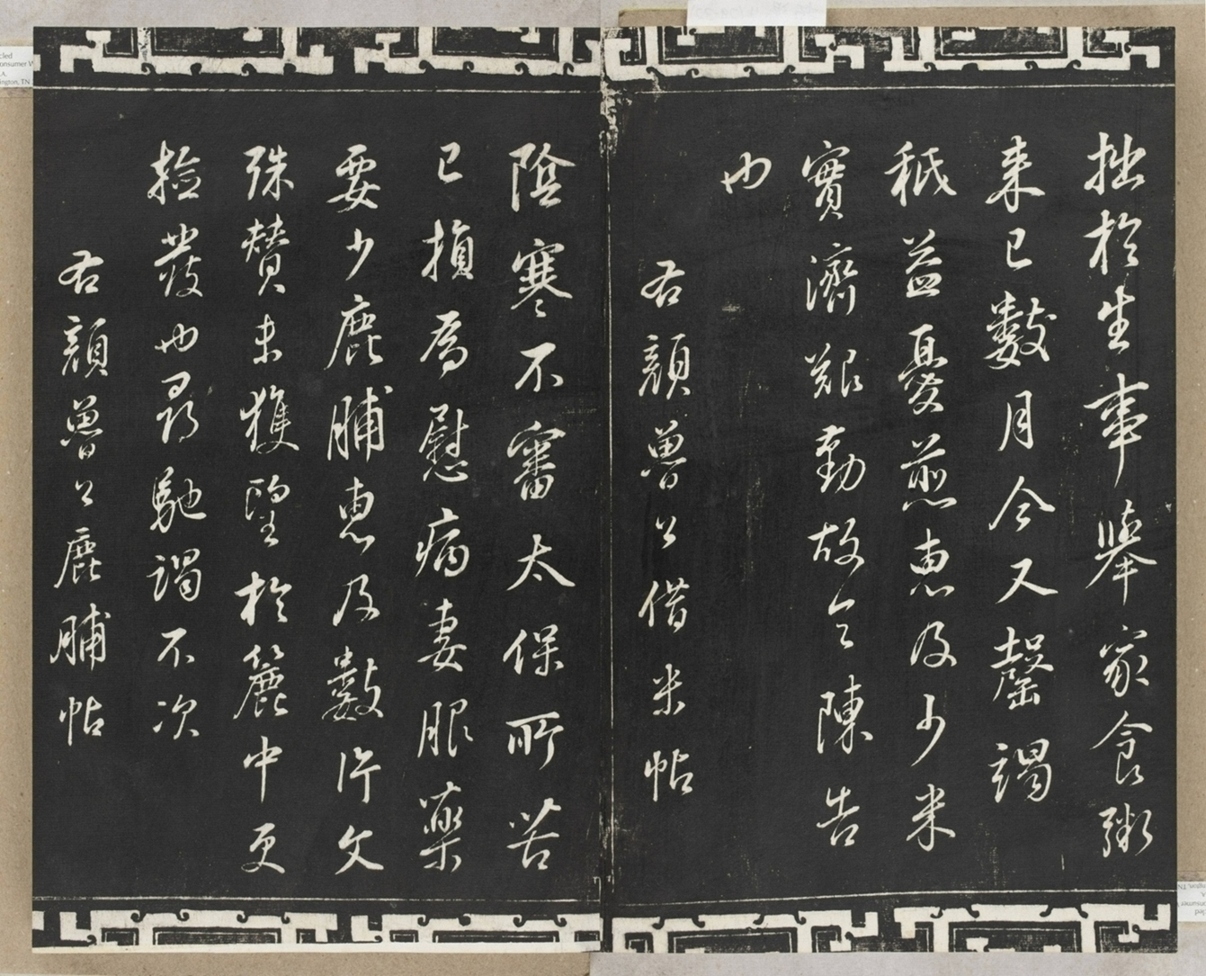 拙於生事舉家食粥
来已數月今又罄竭
秖益憂煎惠及少米
實濟艱勤故令陳告
也
右顏魯公借米帖
陰寒不審太保所苦
已損為慰病妻服藥
要少鹿脯惠及數片文
殊贊未獲望於簏中更
撿發也尋馳謁不次
右顏魯公鹿脯帖